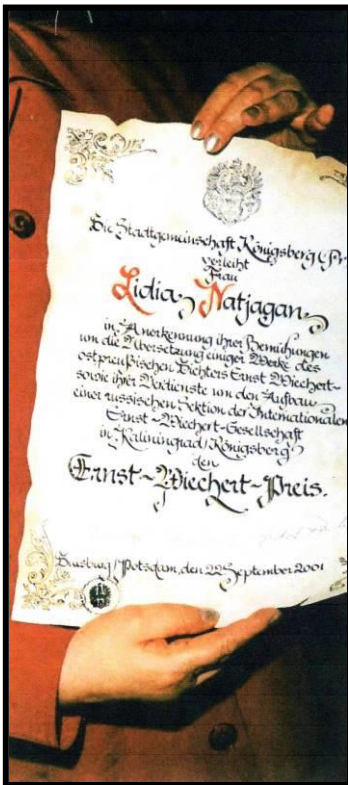 Die Stadtgemeinschaft Königsberg (Pr
verleiht
Frau
Lidia Natjagan
in Anerkennung ihrer Bemühungen
um die Übersetzung einiger Werke des
ostpreußischen Dichters Ernst Wiechert
sowie ihrer Verdienste um den Aufbau
einer russischen Sektion der Internationalen
Ernst-Wiechert-Gesellschaft
in Kaliningrad/Königsberg
den
Ernst-Wiechert-Preis.
Duisburg/Potsdam, den 22. September 2001